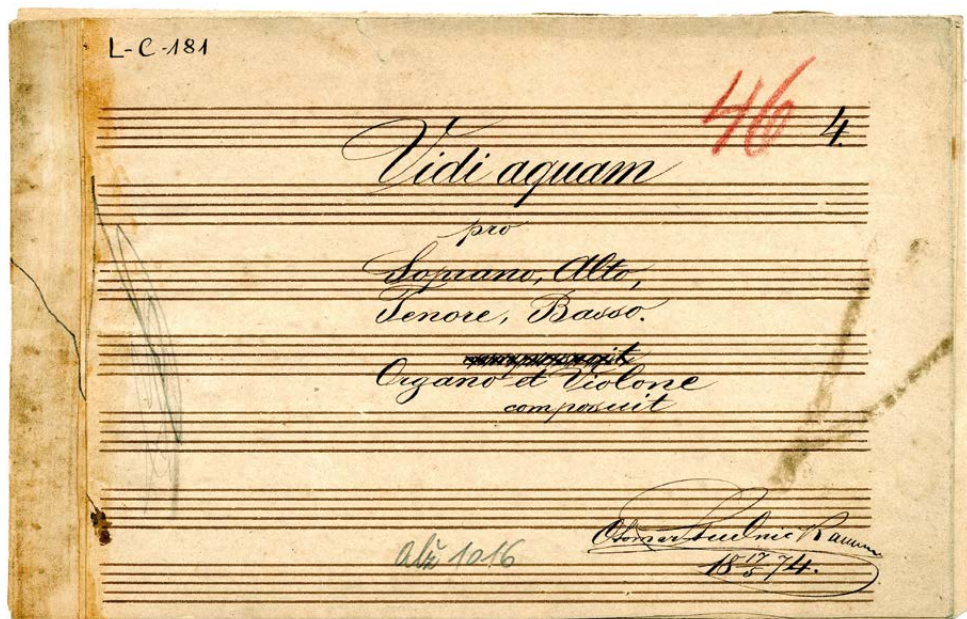 L-C-181
46 4.
Vidi aquam
pro
Soprano, Alto,
Tenore, Basso.
Organo et Violone
composuit
18 17/5 74.
Alž 1016